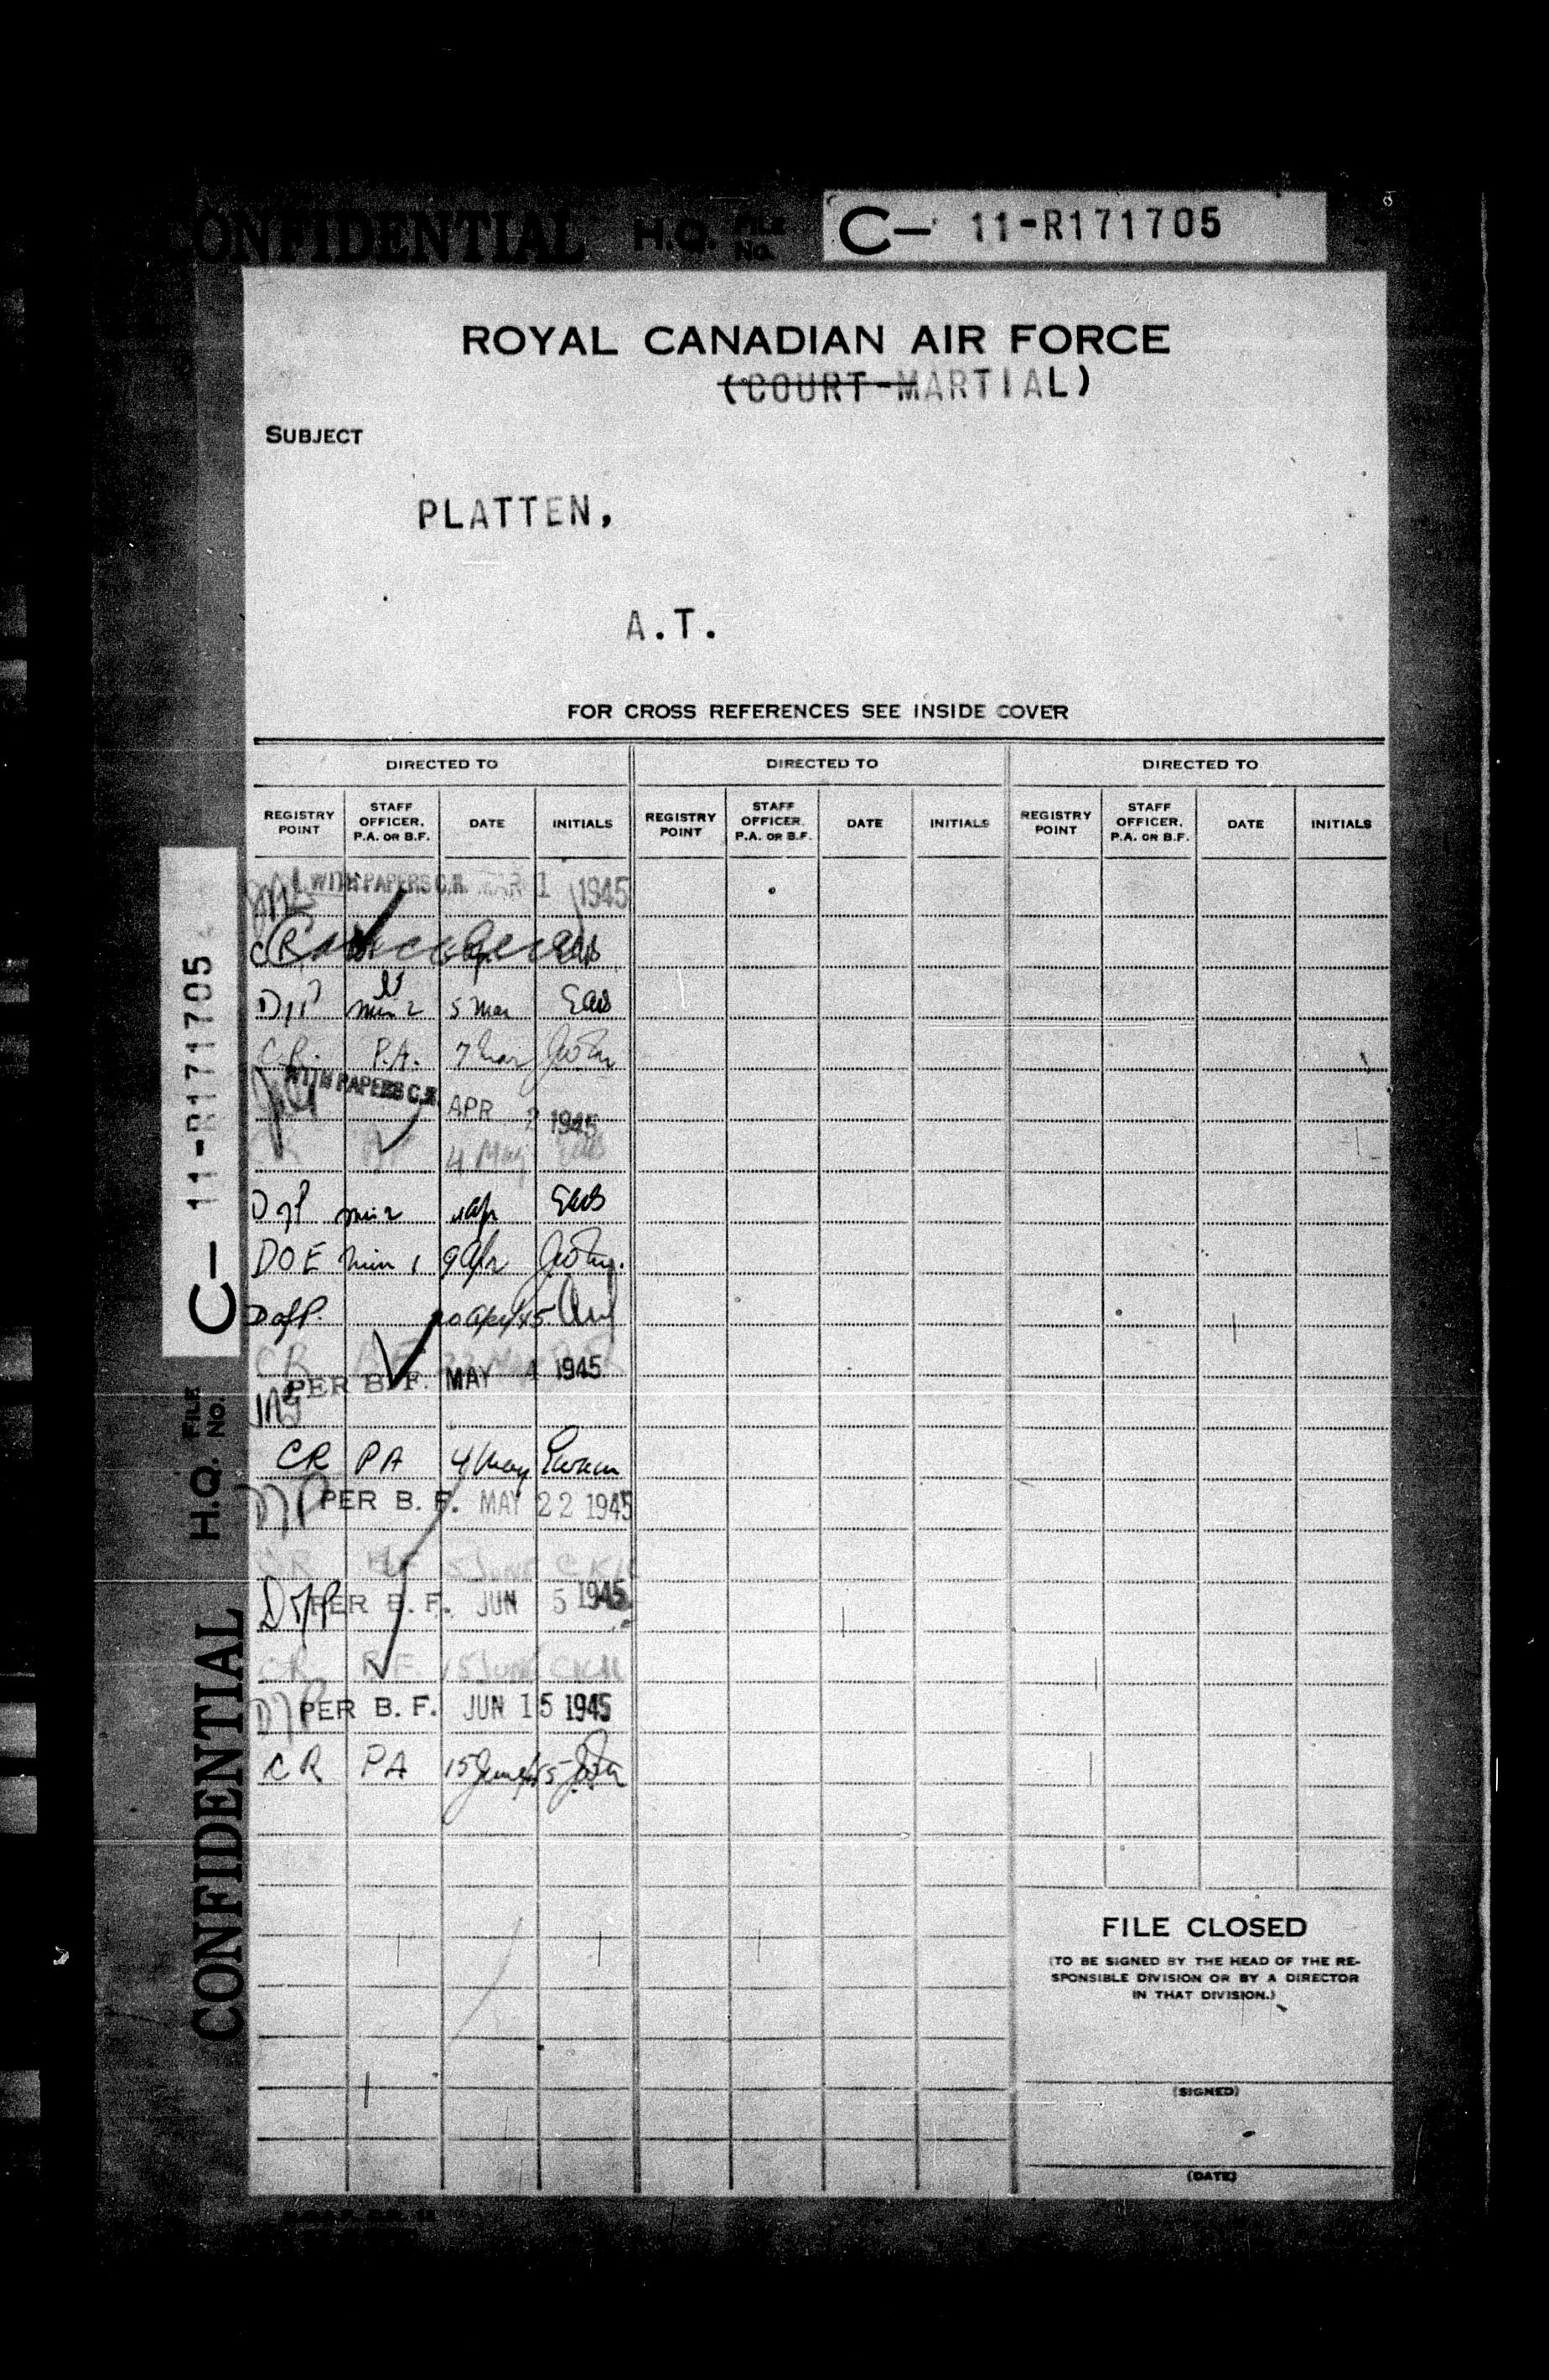 CONFIDENTIAL H.Q. FILE No. C- 11-R171705
ROYAL CANADIAN AIR FORCE
(COURT-MARTIAL)
SUBJECT
PLATTEN,
A.T.
FOR CROSS REFERENCES SEE INSIDE COVER
DIRECTED TO DIRECTED TO DIRECTED TO
REGISTRY POINT STAFF OFFICER, P.A. OR B.F. DATE INITIALS REGISTRY POINT STAFF OFFICER, P.A. OR B.F. DATE INITIALS REGISTRY POINT STAFF OFFICER, P.A. OR B.F. DATE INITIALS
WITH PAPERS C.R. MAR 1 1945
min 2 5 Mar
C.R. P.A. 7 Mar
WITH PAPERS C.R. APR 1945
4 May
min 2
DOE min 1 9 Apr
CR B.F.
PER B.F. MAY 4 1945
CR PA 4 May
PER B. F. MAY 22 1945
CR 5 JUNE
PER B. F. JUN 5 1945
CR B.F. 15 JUNE CKH
PER B. F. JUN 15 1945
CR PA 15 June/45
FILE CLOSED
(TO BE SIGNED BY THE HEAD OF THE RE-
SPONSIBLE DIVISION OR BY A DIRECTOR
IN THAT DIVISION.)
(SIGNED)
(DATE)
CONFIDENTIAL H.Q. FILE No. C- 11-R171705